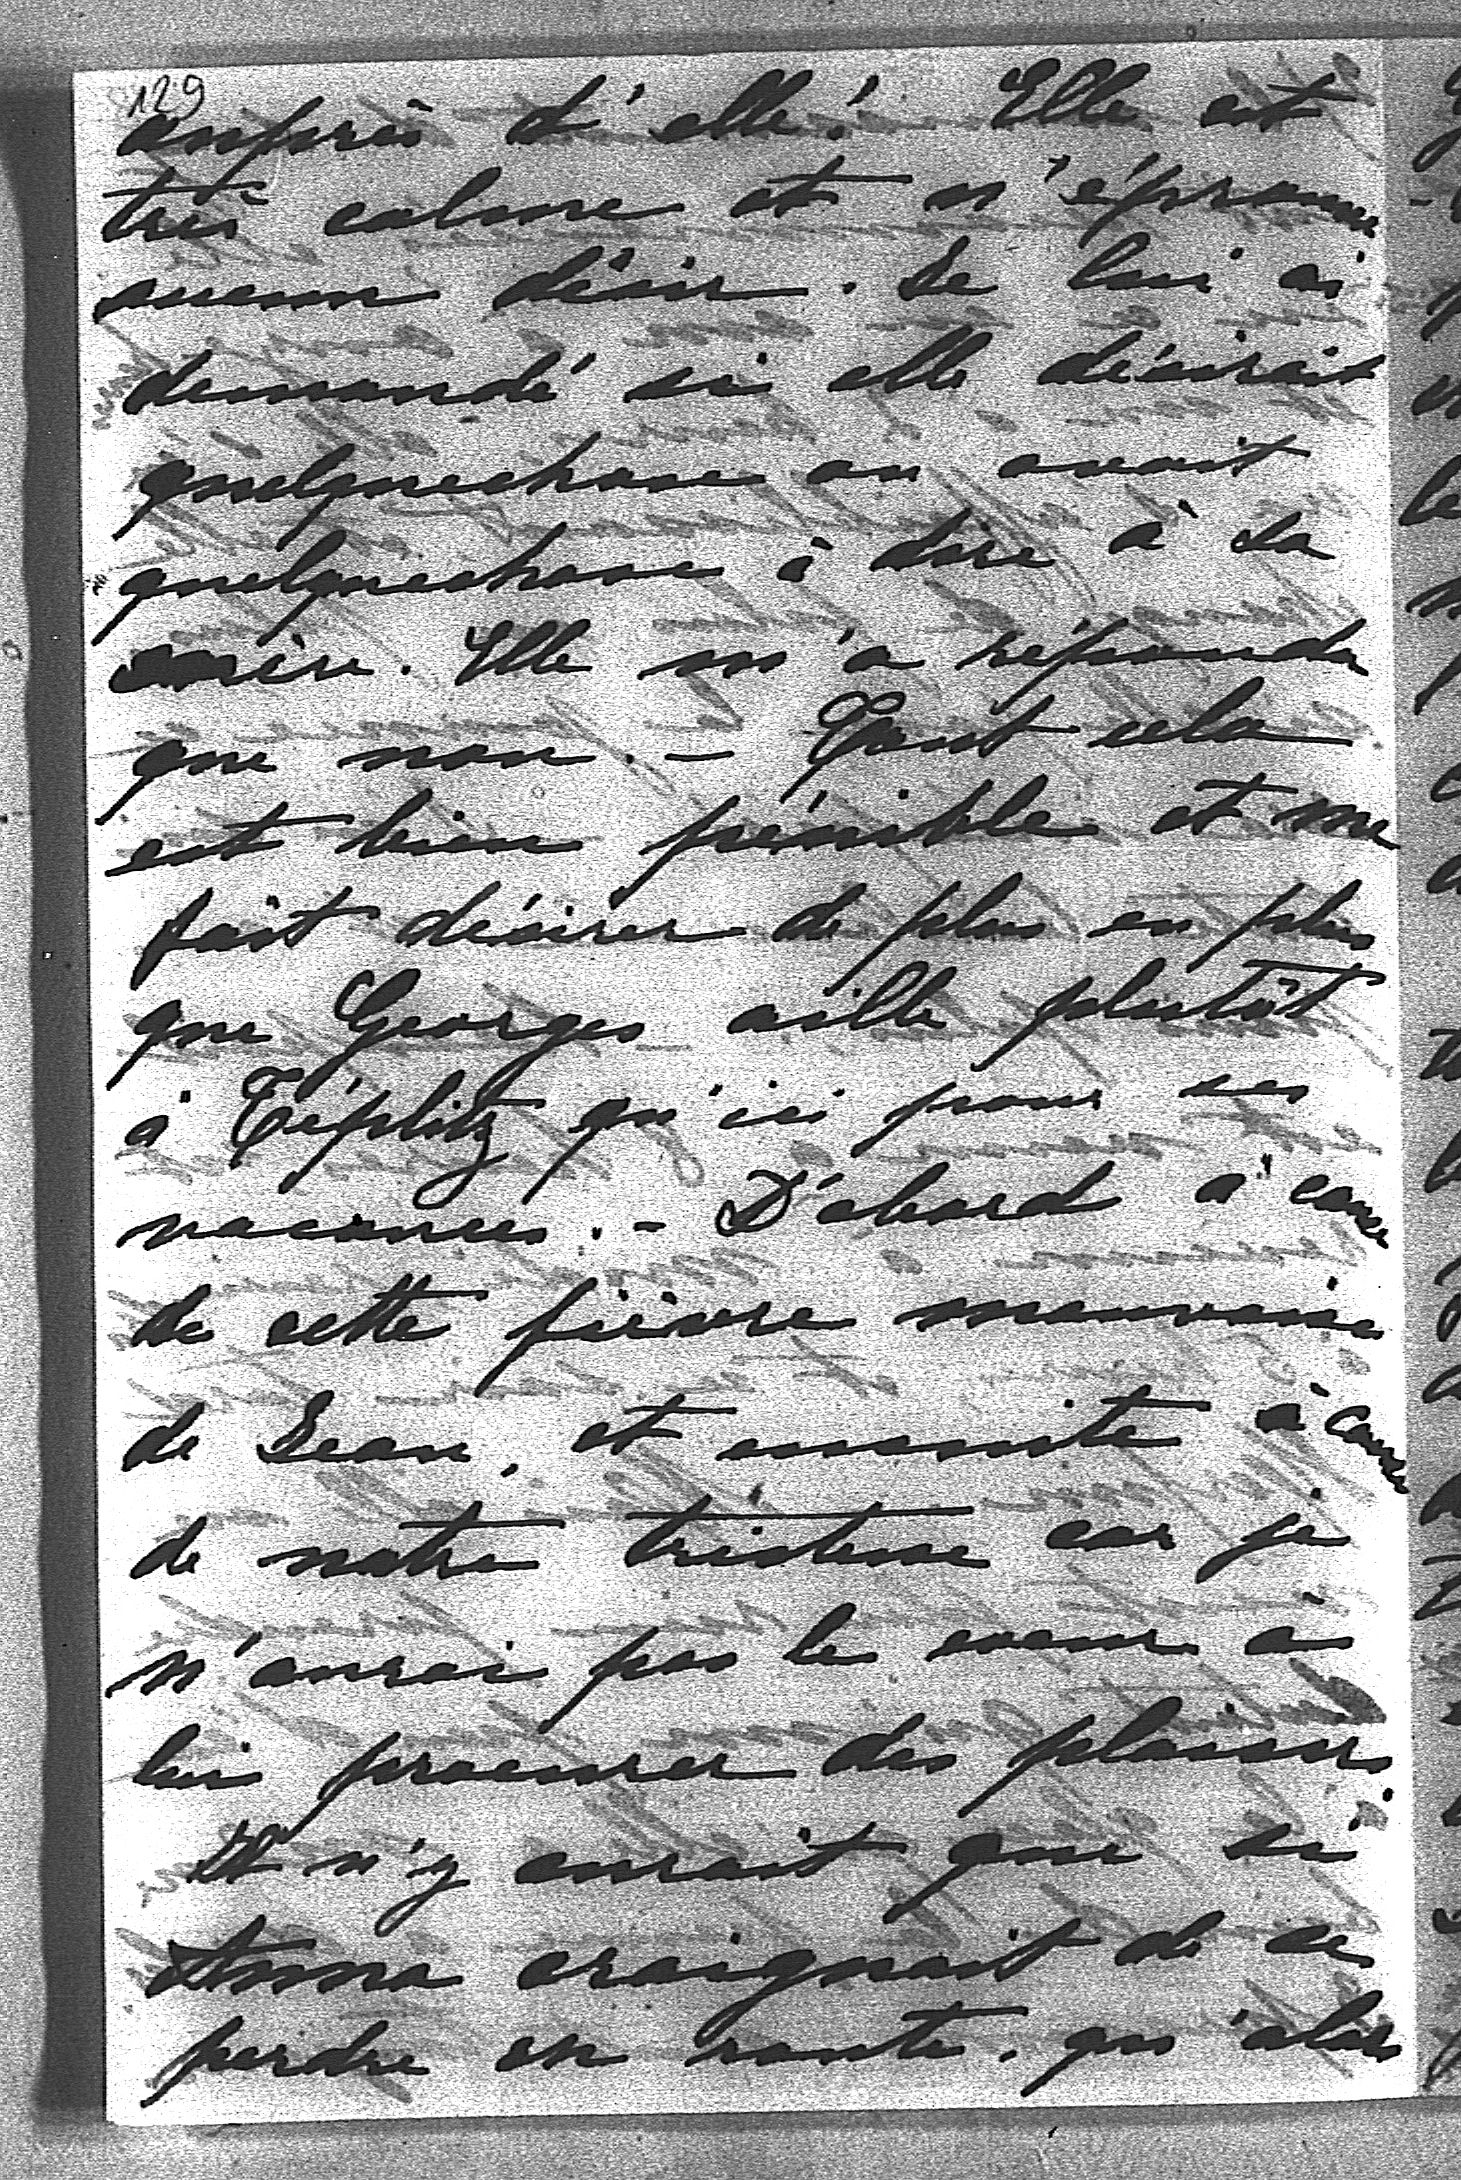 129
auprès d'elle! Elle est
très calme et n'éprouve
aucun désir. Je lui ai
demandé si elle désirait
quelquechose ou avait
quelquechose à dire à sa
mère. Elle m'a répondu
que non. – Tout cela
est bien pénible et me
fait désirer de plus en plus
que Georges aille plutôt
à Téplitz qu'ici pour ses
vacances. – D'abord à cause
de cette fièvre mauvaise
de Jean, et ensuite à cause
de notre tristesse car je
n'aurai pas le coeur à
lui procurer des plaisirs.
Il n'y aurait que si
Anna craignait de se
perdre en route, qu'alors